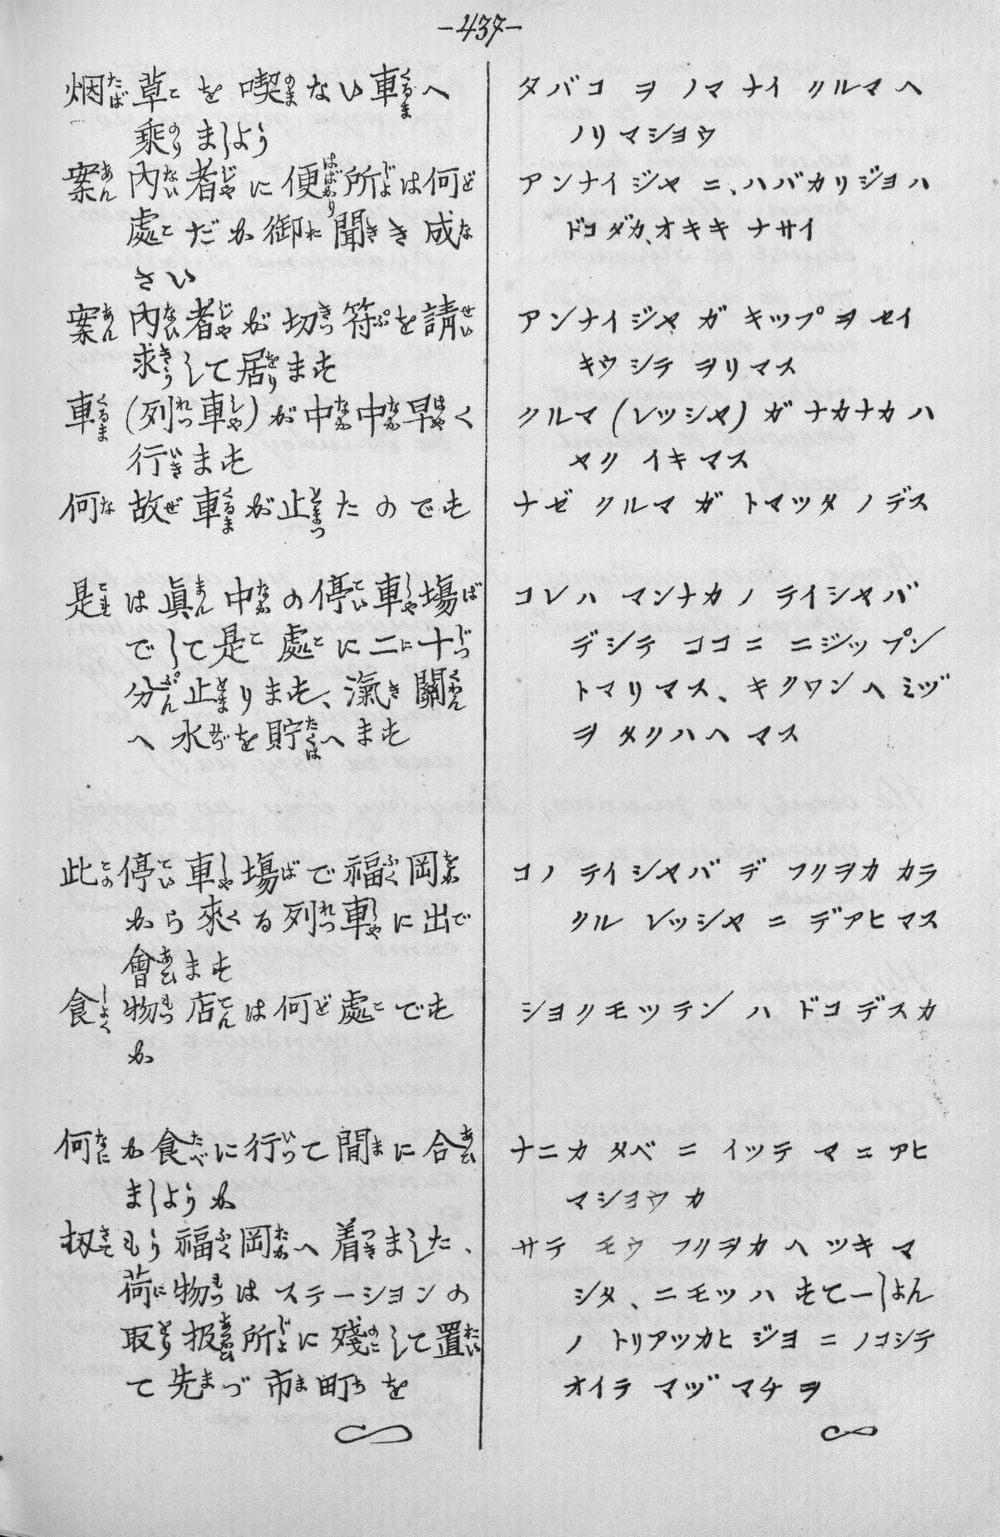 -437-
烟草を喫ない車へ
乘ましよう
案內者に便所は何
處だか御聞き成
さい
案內者が切符を請
求して居ます
車(列車)が中中早く
行ます
何故車が止たのです
是は眞中の停車場
でして是處に二十
分止ります、滊關
へ水を貯へます
此停車場で福岡
から來る列車に出
會ます
食物店は何處です
か
何か食に行て間に合
ましようか
扨もう福岡へ着ました、
荷物はステーションの
取扱所に殘して置
て先づ市町を
タバコ ヲ ノマナイ クルマヘ
ノリマシヨウ
アンナイジヤ ニ、ハバカリジヨハ
ドコダカ、オキキ ナサイ
アンナイジヤ ガ キップ ヲ セイ
キウシテ ヲリマス
クルマ (レッシヤ) ガ ナカナカ ハ
ヤク イキマス
ナゼ クルマ ガ トマツタ ノデス
コレハ マンナカ ノ テイシヤバ
デシテ ココニ ニジップン
トマリマス、キクワンヘミヅ
ヲ タクハヘマス
コノ テイシヤバ デ フクヲカ カラ
クル レッシヤ ニ デアヒマス
シヨクモツテン ハ ドコデスカ
ナニカ タベ ニ イッテ マニアヒ
マシヨウカ
サテ モウ フクヲカ ヘ ツキマ
シタ、ニモツハ すてーしよん
ノ トリアツカヒ ジヨ ニ ノコシテ
オイテ マヅ マチヲ